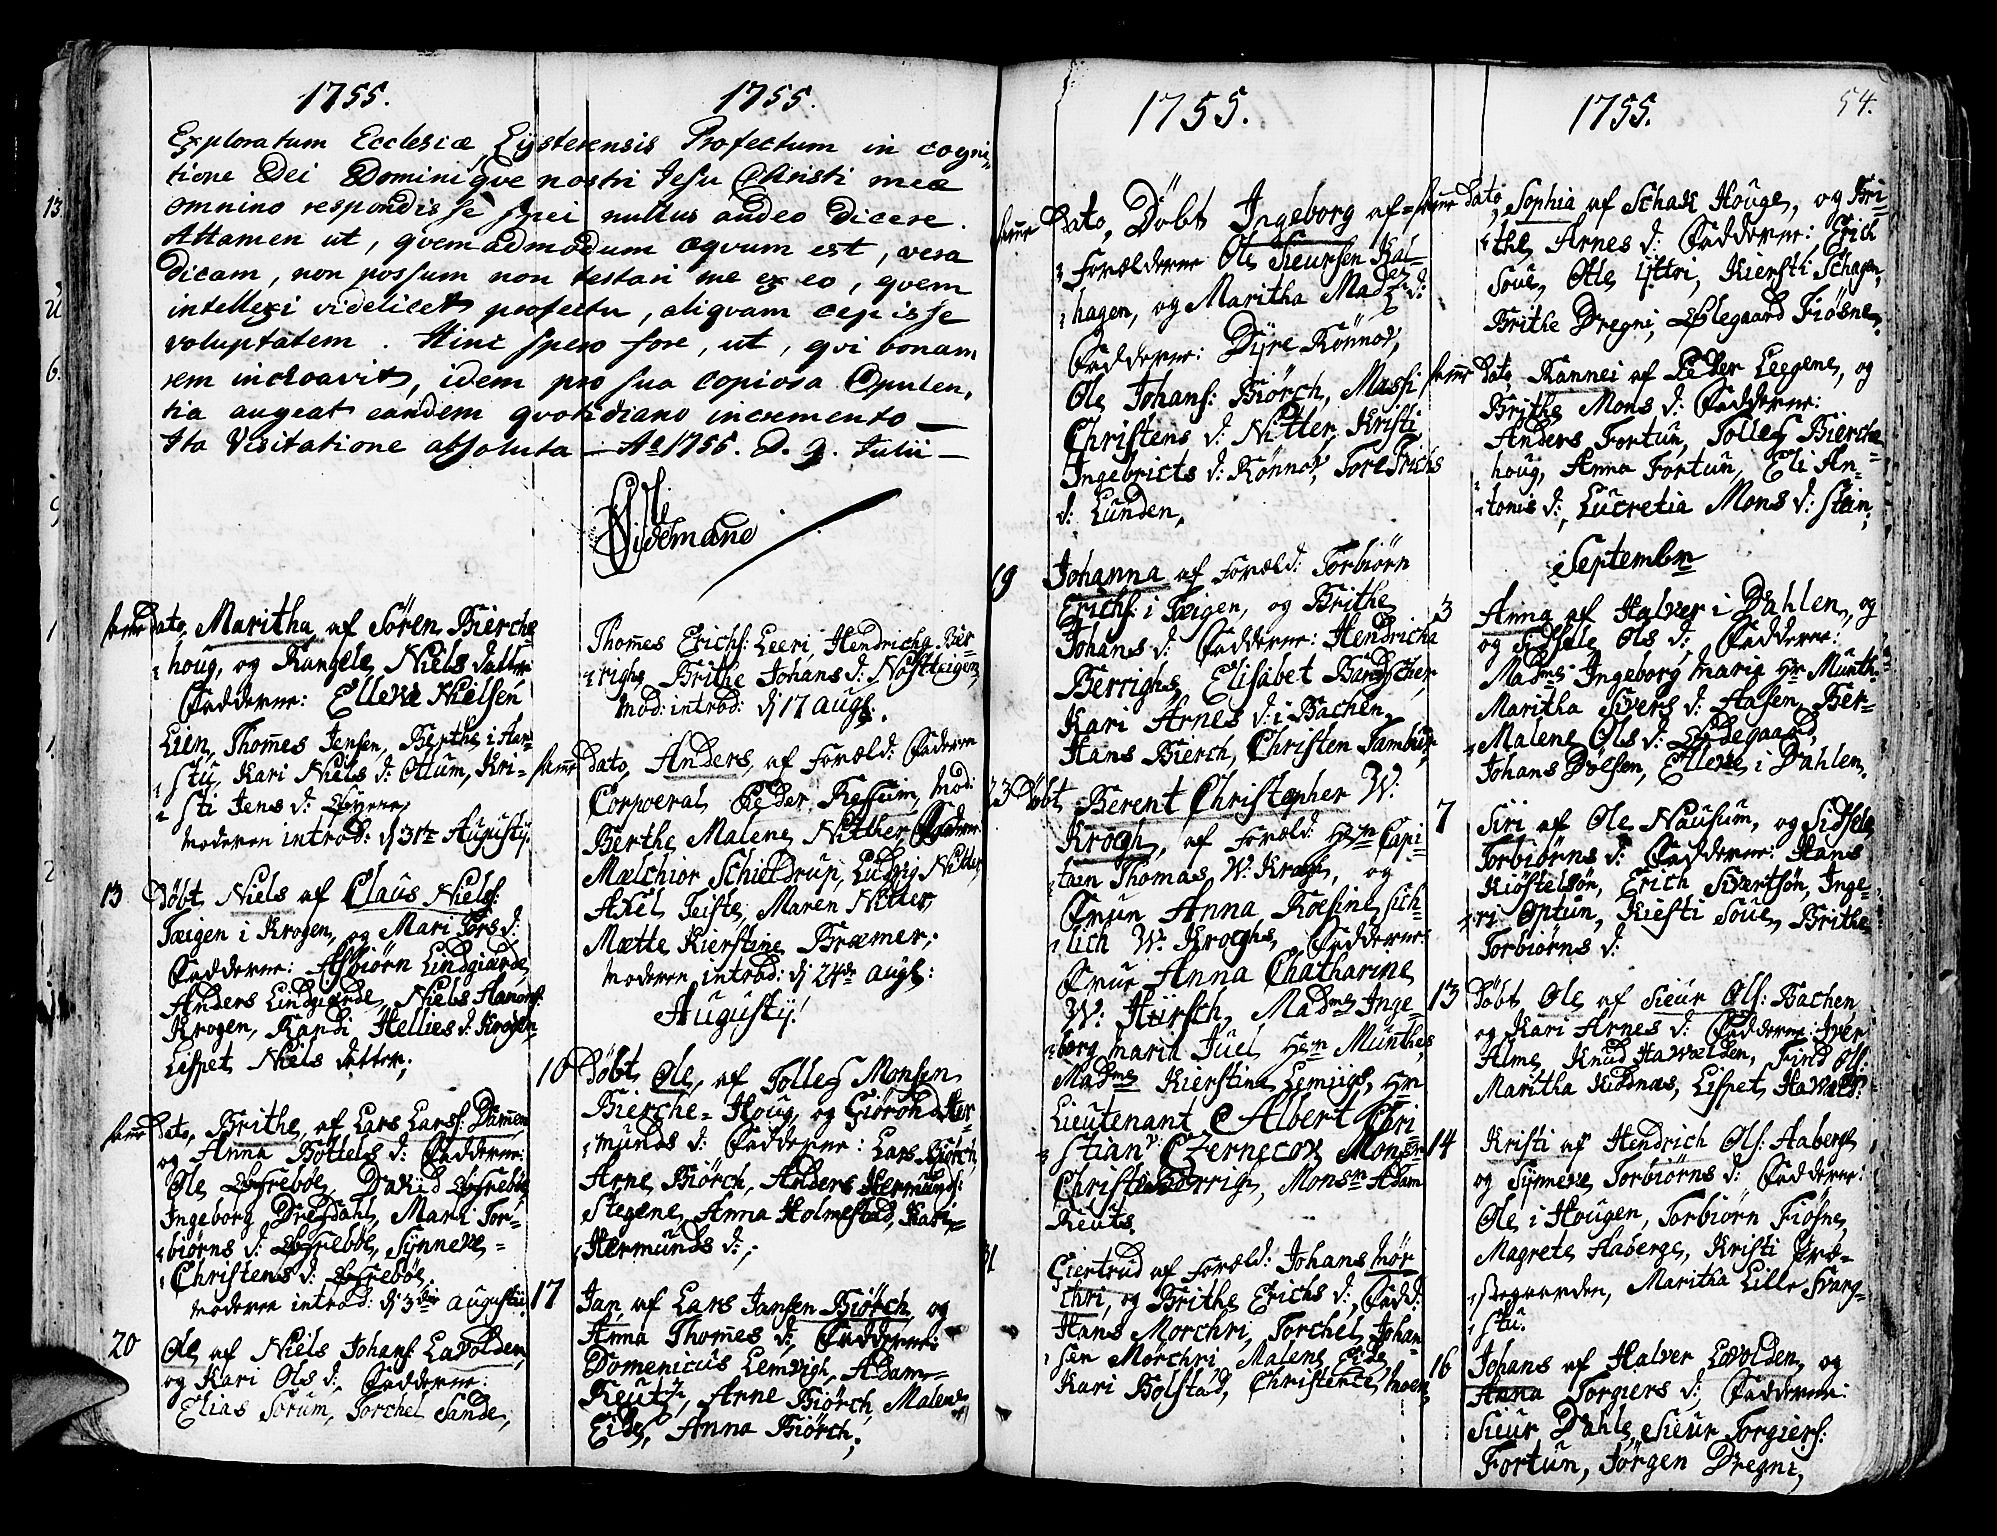 1755.
1755.
Exploratum Ecclesiæ Lysterensis Profectum in cogni-
tione Dei Dominiqve nostri Jesu Christi meæ
omnino respondisse spei nullus audeo dicere.
Attamen ut, qvemadmodum æqvum est, vera
dicam, non possum non testari me ex eo, qvem
intellexi videlicet profectu, aliqvam cepisse
voluptatem. Hinc spero fore, ut, qvi bonam
rem inchoavit, idem pro sua copiosa Opulen,
tia augeat eandem qvotidiano incremento —
Ita Visitatione absoluta — Ao 1755. D. 9. Julii —
Oli
Tidemand
samme Dato, Maritha af Sören Bierche
houg, og Rangele Niels datter
Fadderne: Ellevi Nielsen
Lien, Thomes Jensen, Berthe i Har-
stu, Kari Niels d: Ottum, Kri-
sti Jens d:
moderen introd: d 31te Augusty.
13 Döbt Niels af Claus Niels:
Tæigen i Krogen, og Mari Tors d:
Fadderne: Asbiörn Lindgiærde
Anders Lindgiærde, Niels
Krogen, Randi Hellies d: Krogen
Lispet Niels datter;
samme Dato, Brithe af Lars Larss: Dammen
og Anna Bottels d: Fadderne:
Ole Öfreböe, David Öfreböe
Ingeborg Dregdahl, Mari Tor-
biörns d: Öfreböe, Synneve-
Christens d: Öfreböe.
moderen introd: d 3die augustii
20 Ole af Niels Johans: Lavolden,
og Kari Ols d; Fadderne:
Elias Sorum, Torchel Sande,
Thomes Erichs: Leeri, Hendricha Ber-
righ, Brithe Johans d:
mod: introd: d 17 augs.
samme Dato, Anders, af Foræld: Fadderen
Corporal Peder Ressum, Mod:
Berthe Malene Nitter, Fadderne
Mælchior Schieldrup, Ludvig Nitter,
Axel Teiste, Maren Nitter,
Mætte Kierstine Bræmer,
moderen introd: d 24de augs:
Augusty!
10 Döbt Ole, af Tollef Monsen
Bierche-Houg, og Giöroh Her-
munds d: Fadderne: Lars Biörch,
Arne Biörch, Anders Hermunds:
Stegene, Anna Holmestad, Kari-
Hermunds d:;
17 Jan af Lars Jansen Biörch og
Anna Thomes d; Fadderne:
Domenicus Lemvigh, Adam-
Reutz, Arne Biörch, Malene
Eide, Anna Biörch;
1755.
1755.
54.
samme Dato, Döbt Ingeborg af-
Forælderne Ole Sieursen Kal-
hagen, og Maritha Mads d:
Fadderne: Dyre Rönnov,
Ole Johans: Biörch, Massi
Christens d: Nitter, Kristi
Ingebricts d: Rönnov, Tore Erichs
d: Lunden,
19 Johanna af Foræld: Torbiörn
Erichs: i Tæigen, og Brithe
Johans d: Fadderne: Hendricha
Berrighs, Elisabet
Kari Arnes d: i Bachen,
Hans Bierch, Christen Tambur,
23 Döbt Berent Christopher W:
Krogh, af Foræld: Herr Capi-
tain Thomas W: Krogh, og
Frue Anna Roesine Sich-
lich W: Kroghs, Fadderne:
Frue Anna Chatharine
W: Hürsch, Madme Inge-
borg maria Juel, Hern Munthes,
Madme Kierstina Lemvigs, Hr
Lieutenant C Albert Chri-
stian v: Czernecov, Monsr
Christen Berrigh, Monsr Adam
Reuts.
31 Giertrud af Foræld: Johans Mör-
chri, og Brithe Erichs d: Fadd:
Hans Morchri, Torchel Johan-
sen Mörchri, Malene Eide,
Kari Bolstad, Christence Moen,
samme Dato, Sophia af Schak Houge, og Bri-
the Arnes d: Fadderne: Erich
Soue, Ole Ystri, Kiersti Schagen,
Brithe Dregni, Fiösne,
samme Dato, Rannei af Peder Leegene, og
Brithe Mons d: Fadderne:
Anders Fortun, Tollef Bierche
houg, Anna Fortun, Eli An-
tonis d:, Lucretia Mons d: Stein,
Septembr
3 Anna af Halver i Dahlen, og
og Sidsele Ols d; Fadderne:
Madme Ingeborg marie Hr Munth
Maritha Sivers d: Aasen, Ber-
Malene Ols d:
Johans Dölsen, Elleve i Dahlen.
7 Siri af Ole Nausum, og Sidsele
Torbiörns d: Fadderne: Hans
Kiöstelsön, Erich Sivertsön, Inge-
ri Optun, Kiesti Soue, Brithe
Torbiörns d:
13 Döbt Ole af Sieur Ols: Bachen,
og Kari Arnes d: Fadderne: Iver
Alme, Knud Havelden, Find Ols:
Maritha Kiddnæs, Lispet
14 Kristi af Hendrich Ols: Aaberge
og Synneve Torbiörns d: Fadderne:
Ole i Hougen, Torbiörn Fiösne,
Magrete Aaberge, Kristi Præ-
stegaarden, Maritha Lille Svang-
stu.
16 Johans af Halver Lovolden, og
Anna Torgiers d; Fadderne:
Sieur Dahle, Sieur Torgiers:
Fortun, Jörgen Dregni,